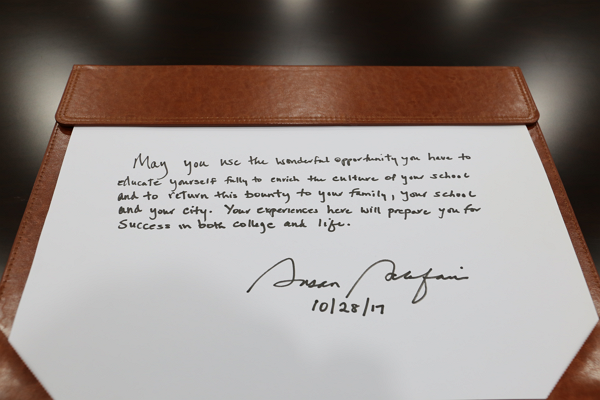 May you use the wonderful opportunity you have to
educate yourself fully to enrich the culture of your school
and to return this bounty to your family, your school
and your city. Your experiences here will prepare you for
success in both college and life.
Susan
10/28/17